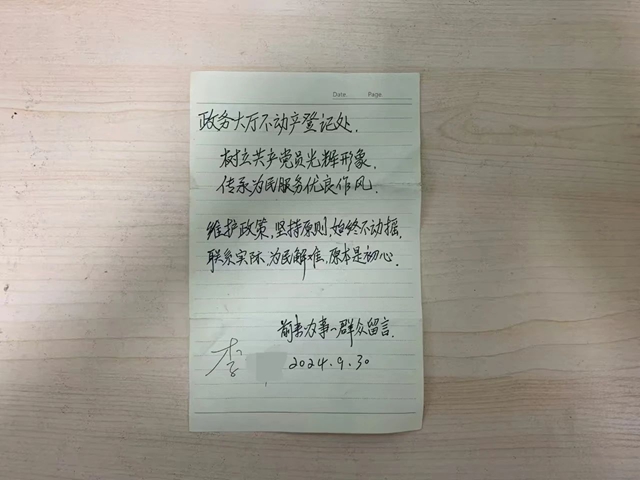 Date. Page
政务大厅不动产登记处.
树立共产党员光辉形象.
传承为民服务优良作风.
维护政策,坚持原则,始终不动摇.
联系实际,为民解难,原本是初心.
前来办事一群众留言.
李
2024.9.30